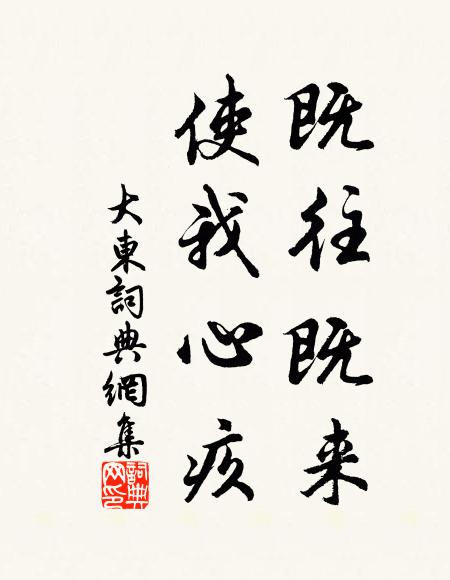 既往既来
使我心疚
大東詞典網集
詞典網印